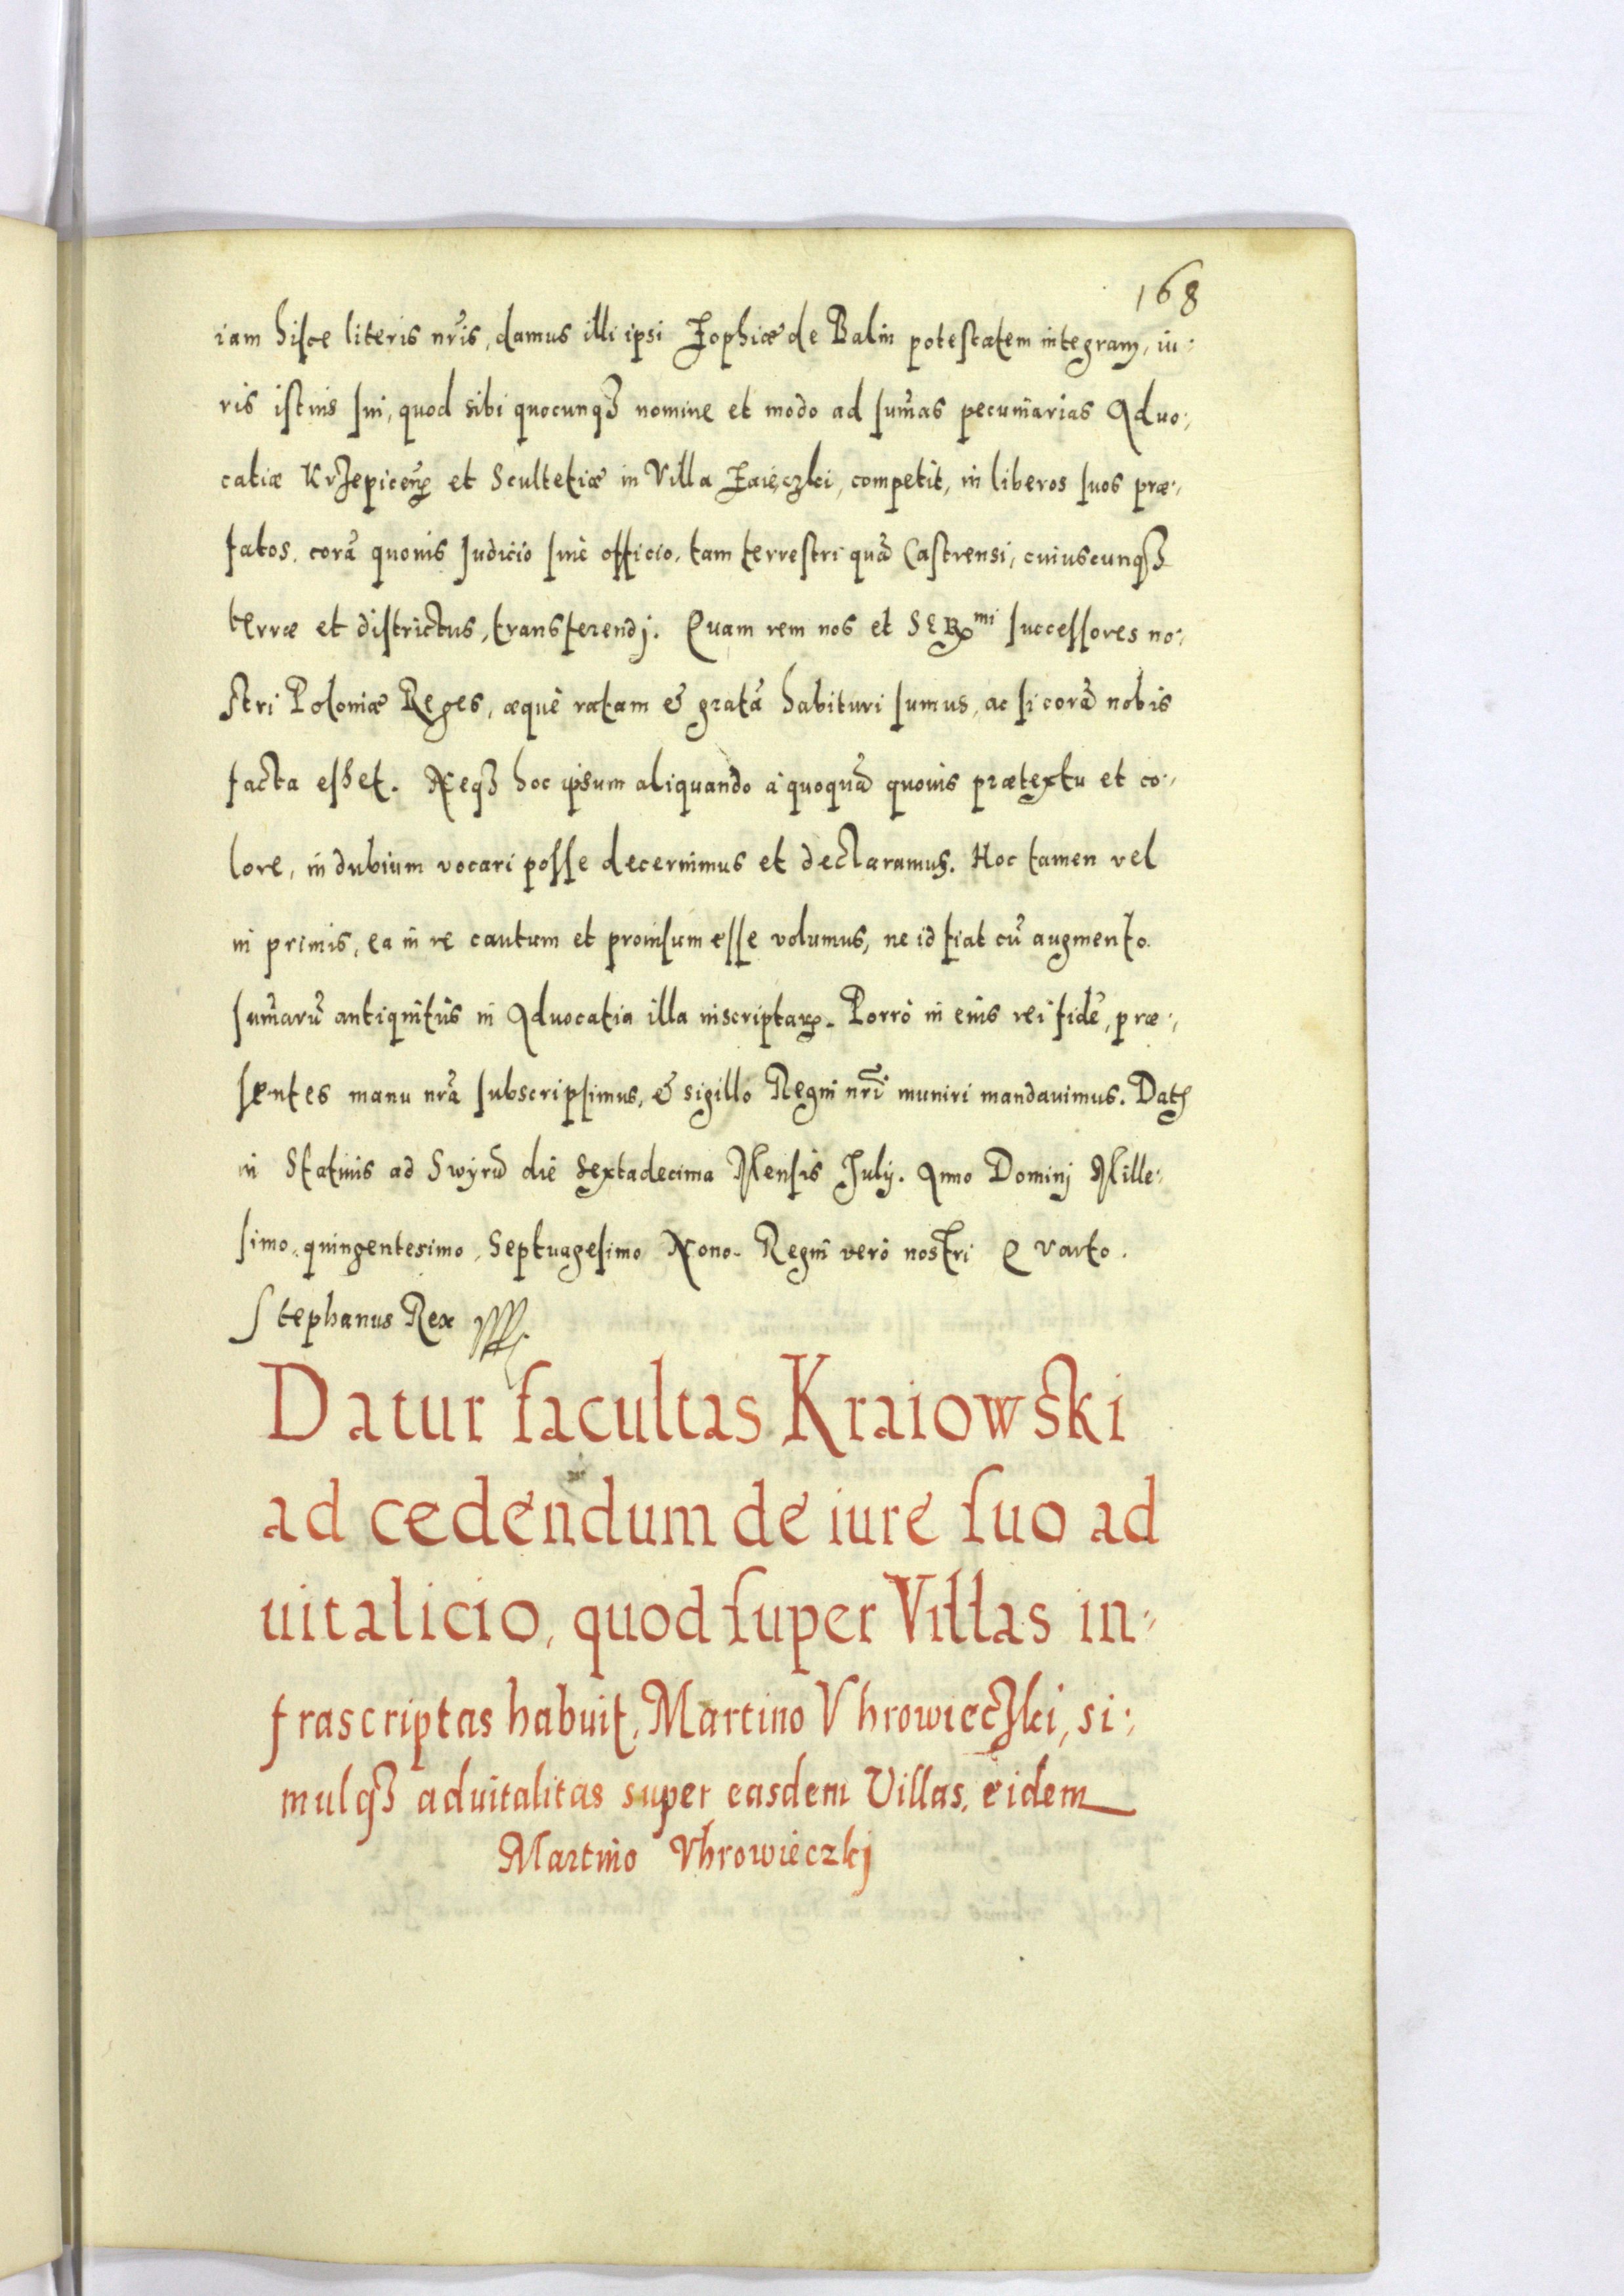 168
iam hisce literis nr̃is, damus illi ipsi Zophiæ de Balin potestatem integram, iu:
ris istius sui, quod sibi quocunqʒ nomine et modo ad sum̃as pecuniarias Aduo:
catiæ Krzepicen̄ et Scultetiæ in Villa Zaięczki, competit, in liberos suos præ:
fatos, corã quouis Judicio siuè officio, tam terrestri quã Castrensi, cuiuscunqʒ
terræ et districtus, transferendj. Quam rem nos et SERmi successores no:
stri Poloniæ Reges, æquè ratam & gratã habituri sumus, ac si corã nobis
facta esset. Neqʒ hoc ipsum aliquando à quoquã quouis prætextu et co:
lore, in dubium vocari posse decernimus et declaramus. Hoc tamen vel
in primis, ea in re cautum et prouisum esse volumus, ne id fiat cũ augmento
sum̃arũ antiquitùs in Aduocatia illa inscriptaꝝ. Porrò in eius rei fidẽ, præ:
sentes manu nr̃a subscripsimus, & sigillo Regni nr̃i muniri mandauimus. Datʒ
in Statiuis ad Swyrũ die Sextadecima Mensis Julij. Anno Dominj Mille:
simo, quingentesimo, Septuagesimo Nono. Regni verò nostri Quarto.
Stephanus Rex
Datur facultas Kraiowski
ad cedendum de iure suo ad
uitalicio, quod super Villas in:
frascriptas habuit, Martino Vhrowieczki, si:
mulqʒ aduitalitas super easdem Villas, eidem
Martino Vhrowieczkj